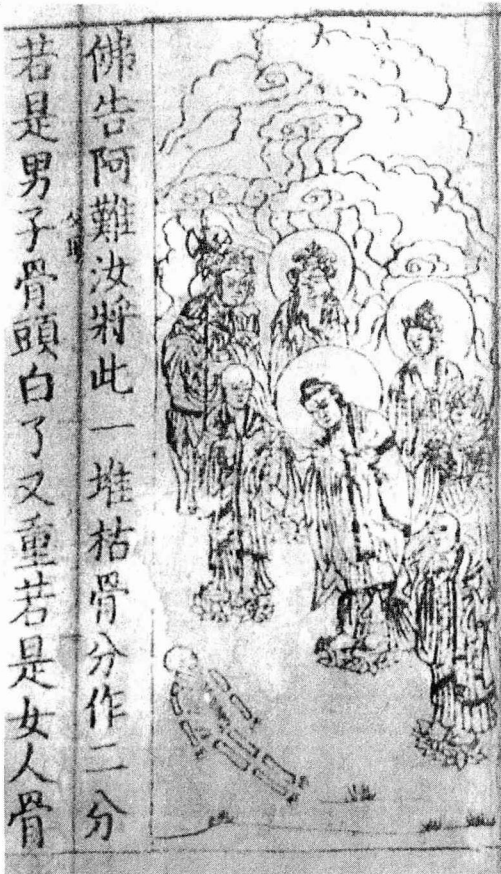 佛告阿難汝將此一堆枯骨分作二分
若是男子骨頭白了又重若是女人骨